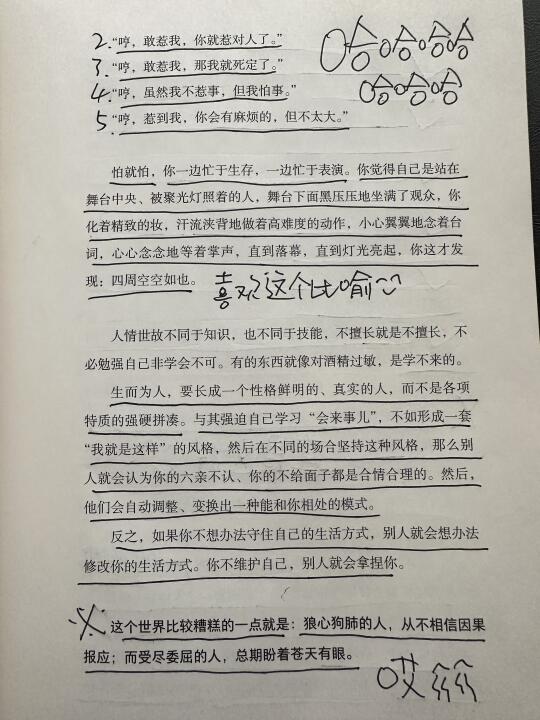 2. “哼，敢惹我，你就惹对人了。”
3. “哼，敢惹我，那我就死定了。”
4. “哼，虽然我不惹事，但我怕事。”
5. “哼，惹到我，你会有麻烦的，但不太大。”
怕就怕，你一边忙于生存，一边忙于表演。你觉得自己是站在
舞台中央、被聚光灯照着的人，舞台下面黑压压地坐满了观众，你
化着精致的妆，汗流浃背地做着高难度的动作，小心翼翼地念着台
词，心心念念地等着掌声，直到落幕，直到灯光亮起，你这才发
现：四周空空如也。
喜欢这个比喻
人情世故不同于知识，也不同于技能，不擅长就是不擅长，不
必勉强自己非学会不可。有的东西就像对酒精过敏，是学不来的。
生而为人，要长成一个性格鲜明的、真实的人，而不是各项
特质的强硬拼凑。与其强迫自己学习“会来事儿”，不如形成一套
“我就是这样”的风格，然后在不同的场合坚持这种风格，那么别
人就会认为你的六亲不认、你的不给面子都是合情合理的。然后，
他们会自动调整、变换出一种能和你相处的模式。
反之，如果你不想办法守住自己的生活方式，别人就会想办法
修改你的生活方式。你不维护自己，别人就会拿捏你。
这个世界比较糟糕的一点就是：狼心狗肺的人，从不相信因果
报应；而受尽委屈的人，总期盼着苍天有眼。
哎